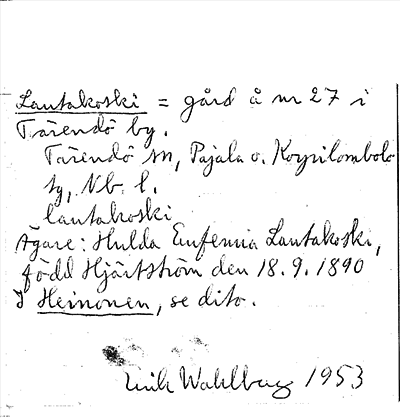 Lantakoski = gård å nr 27 i
Tärendö by.
Tärendö sn, Pajala o. Korpilombolo
tg, Nb. l.
lantakoski
Ägare: Hulda Eufemia Lantakoski,
född Hjärtström den 18.9.1890
J Heinonen, se dito.
Erik Wahlberg 1953